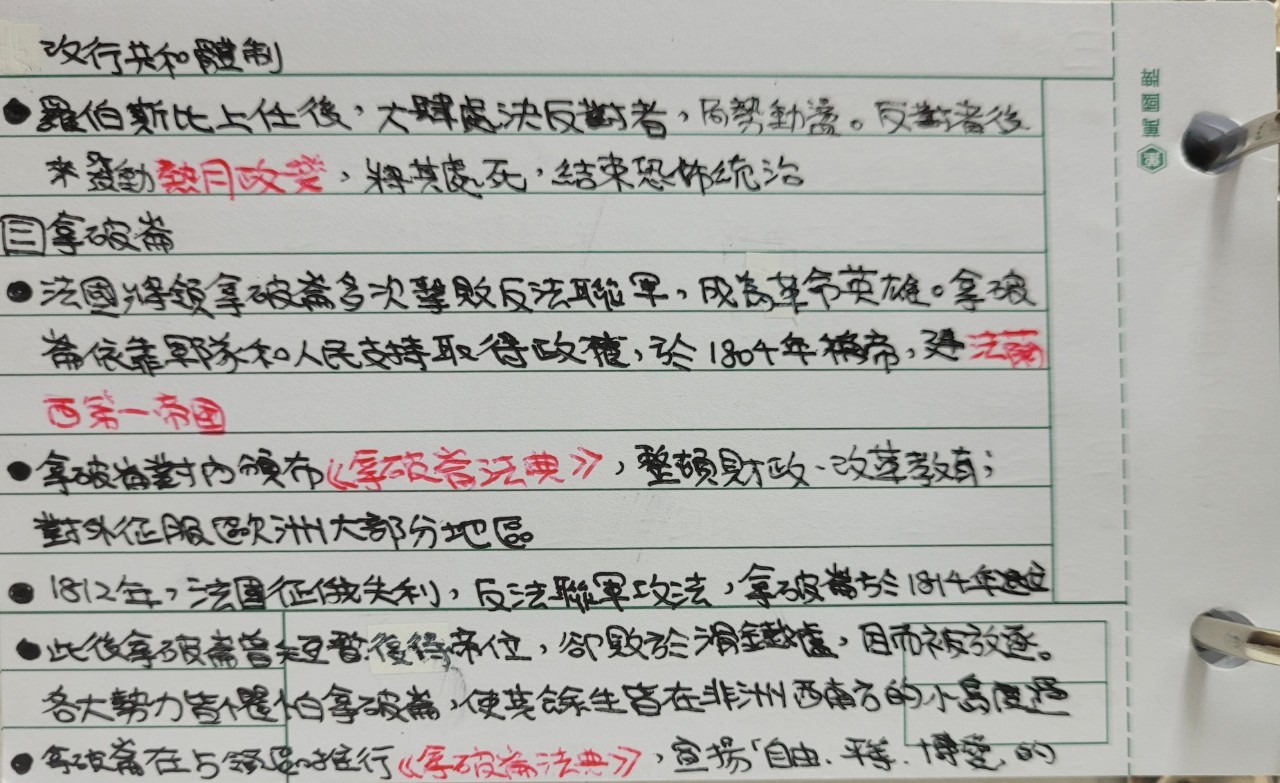 改行共和體制
●羅伯斯比上任後，大肆處決反對者，局勢動盪。反對者後
來發動熱月政變，將其處死，結束恐怖統治
三拿破崙
●法國將領拿破崙多次擊敗反法聯軍，成為革命英雄。拿破
崙依靠軍隊和人民支持取得政權，於1804年稱帝，建法蘭
西第一帝國
●拿破崙對內頒布《拿破崙法典》，整頓財政、改革教育；
對外征服歐洲大部分地區
●1812年，法國征俄失利，反法聯軍攻法，拿破崙於1814年退位
●此後拿破崙曾短暫復得帝位，卻敗於滑鐵盧，因而被放逐。
各大勢力皆懼怕拿破崙，使其餘生皆在非洲西南方的小島度過
●拿破崙在占領區推行《拿破崙法典》，宣揚「自由、平等、博愛」的
萬國牌